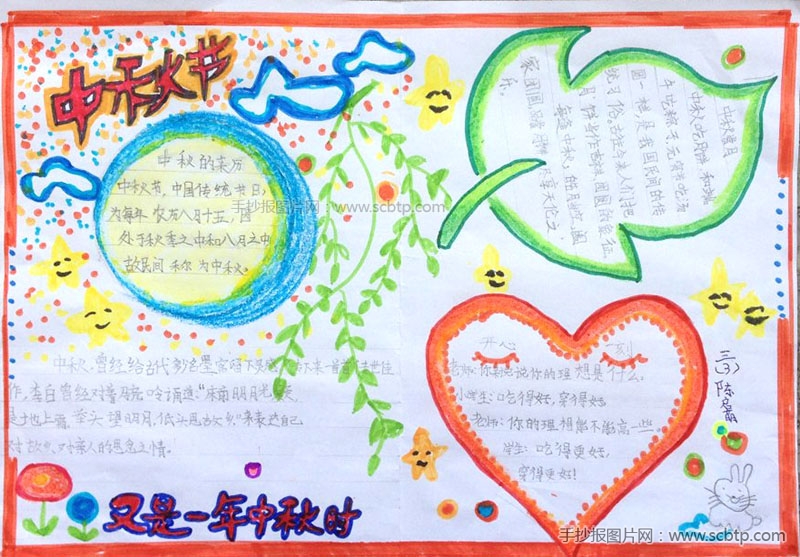 中秋节
中秋的来历
中秋节,中国传统节日,
为每年农历八月十五,因
处于秋季之中和八月之中
故民间称为中秋。
手抄报图片网:www.scbtp.com
中秋赏月
中秋吃月饼和端
午吃粽子,元宵节吃汤
圆一样,是我国民间的传
统习俗,古往今来,人们把
月饼当作吉祥、团圆的象征。
每逢中秋,皓月当空,圆
家团圆,品饼赏月,享天伦之
乐。
开心一刻
老师:你就说说你的理想是什么。
小学生:吃得好,穿得好。
老师:你的理想能不能高一些。
学生:吃得更好,
穿得更好!
三(3)
陈
中秋,曾经给古代
作,李白曾经对着月亮吟诵道:"床前明月光,疑
是地上霜,举头望明月,低头思故乡,"来表达自己
对故乡,对亲人的思念之情。
又是一年中秋时
手抄报图片网:www.scbtp.com